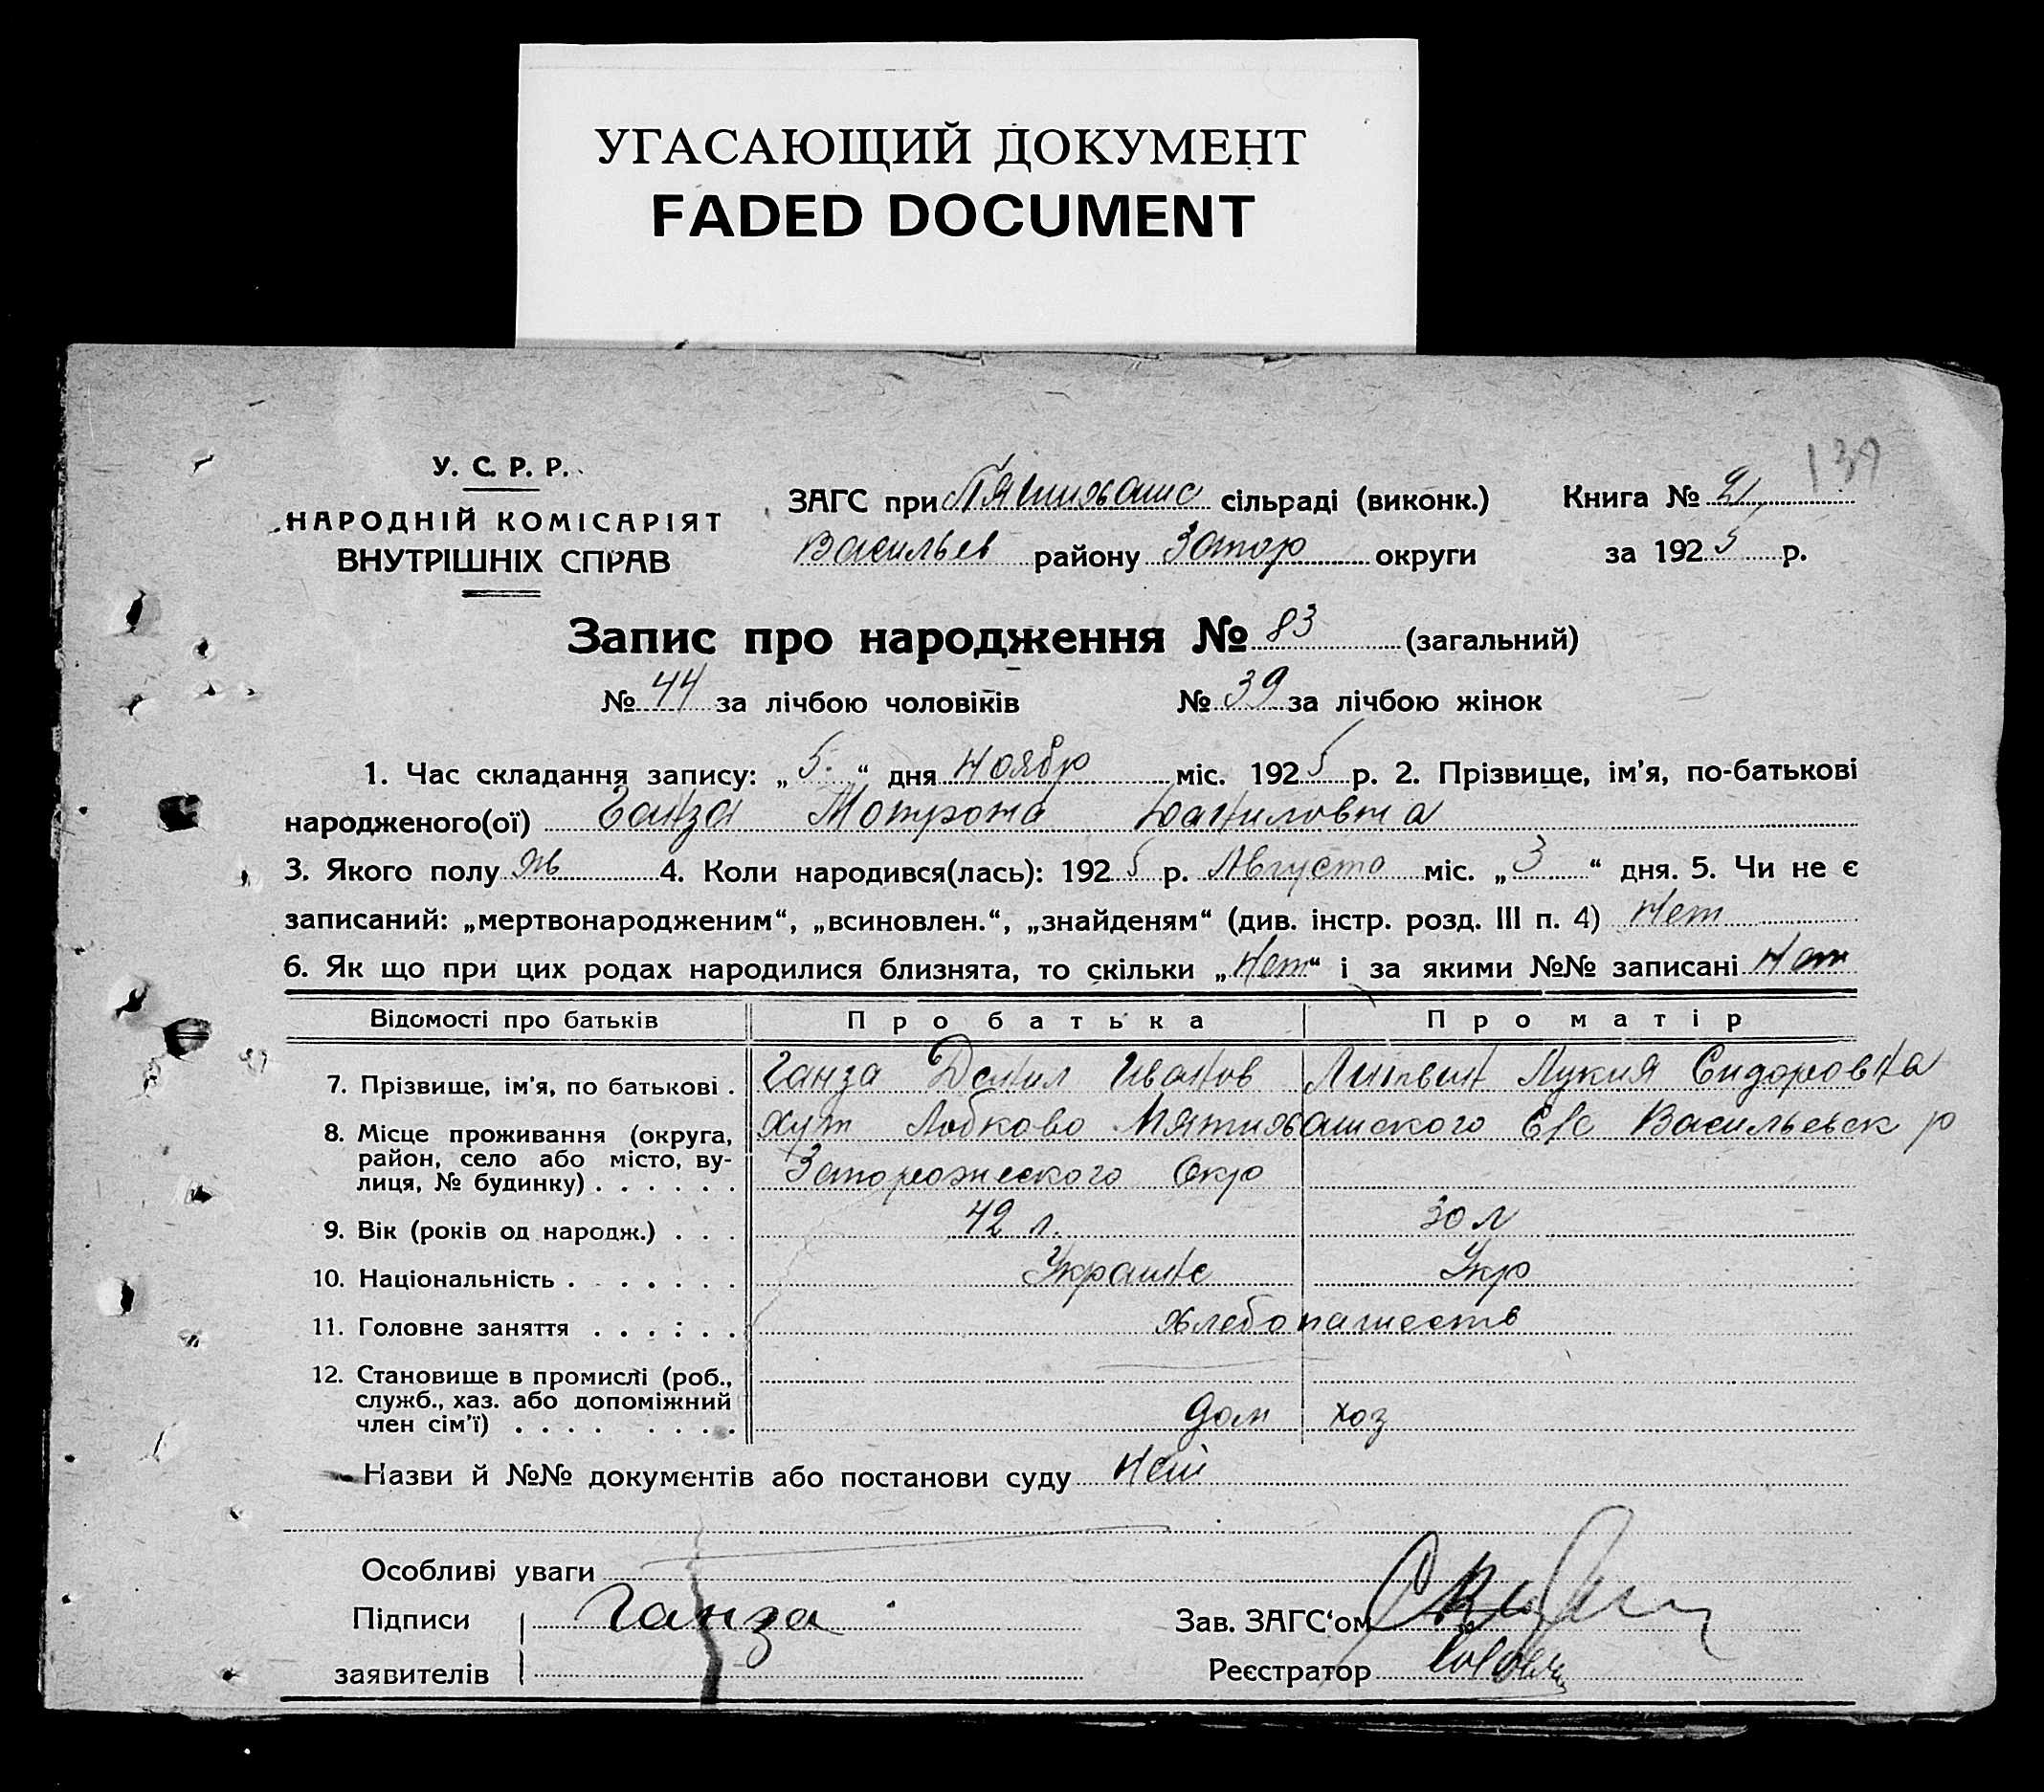 УГАСАЮЩИЙ ДОКУМЕНТ
FADED DOCUMENT
139
У. С. Р. Р.
НАРОДНІЙ КОМІСАРІЯТ
ВНУТРІШНІХ СПРАВ
ЗАГС при Пятихатс сільраді (виконк.)
Васильев району Запор округи
Книга № 21
за 1925 р.
Запис про народження № 83 (загальний)
№ 44 за лічбою чоловіків № 39 за лічбою жінок
1. Час складання запису: „5“ дня Ноябр міс. 1925 р. 2. Прізвище, ім'я, по-батькові
народженого(ої) Ганза Мотрона Даниловна
3. Якого полу ж 4. Коли народився(лась): 1925 р. Августа міс. „3“ дня. 5. Чи не є
записаний: „мертвонародженим“, „всиновлен.“, „знайденям“ (див. інстр. розд. III п. 4) Нет
6. Як що при цих родах народилися близнята, то скільки „Нет“ і за якими №№ записані Нет
Відомості про батьків Про батька Про матір
7. Прізвище, ім'я, по батькові . Ганза Данил Иванов Литвин Лукия Сидоровна
8. Місце проживання (округа, район, село або місто, вулиця, № будинку) . . . . . . хут Лобково Пятихатского С/с Васильевск р
Запорожского Окр
9. Вік (років од народж.) . . . 42 л. 30 л
10. Національність . . . . . . . Украинс Укр
11. Головне заняття . . . . . . хлебопашеств
12. Становище в промислі (роб.,
служб., хаз. або допоміжний
член сім'ї) . . . . . . . . дом хоз
Назви й №№ документів або постанови суду Нет
Особливі уваги
Підписи Ганза Зав. ЗАГС'ом
заявителів Реєстратор